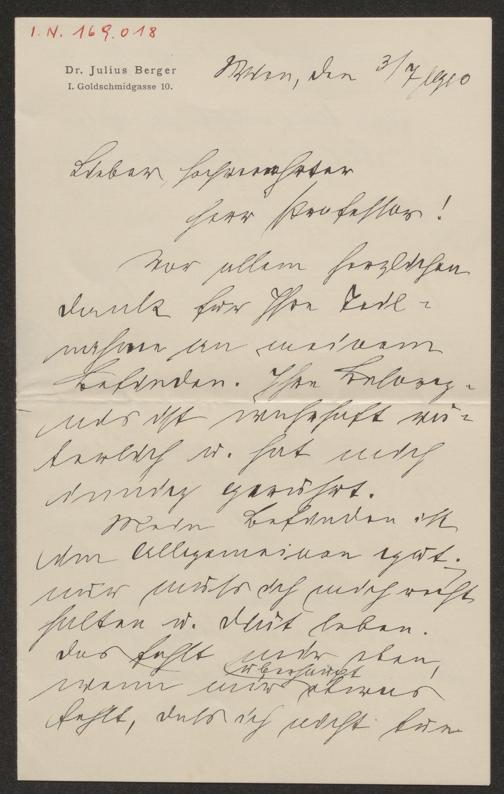 I.N. 169.018
Dr. Julius Berger
I. Goldschmidgasse 10.
Wien, den 3/7 1910
Lieber, hochverehrter
Herr Professor!
Vor allem herzlichen
Dank für Ihre Teil-
nahme an meinem
Befinden. Ihre
ist wahrhaft vä-
terlich u. hat mich
innig gerührt.
Mein Befinden ist
im Allgemeinen gut.
nur muss ich mich recht
halten u. Diät leben.
Das fehlt mir eben,
wenn mir überhaupt etwas
fehlt, dass ich nicht tun